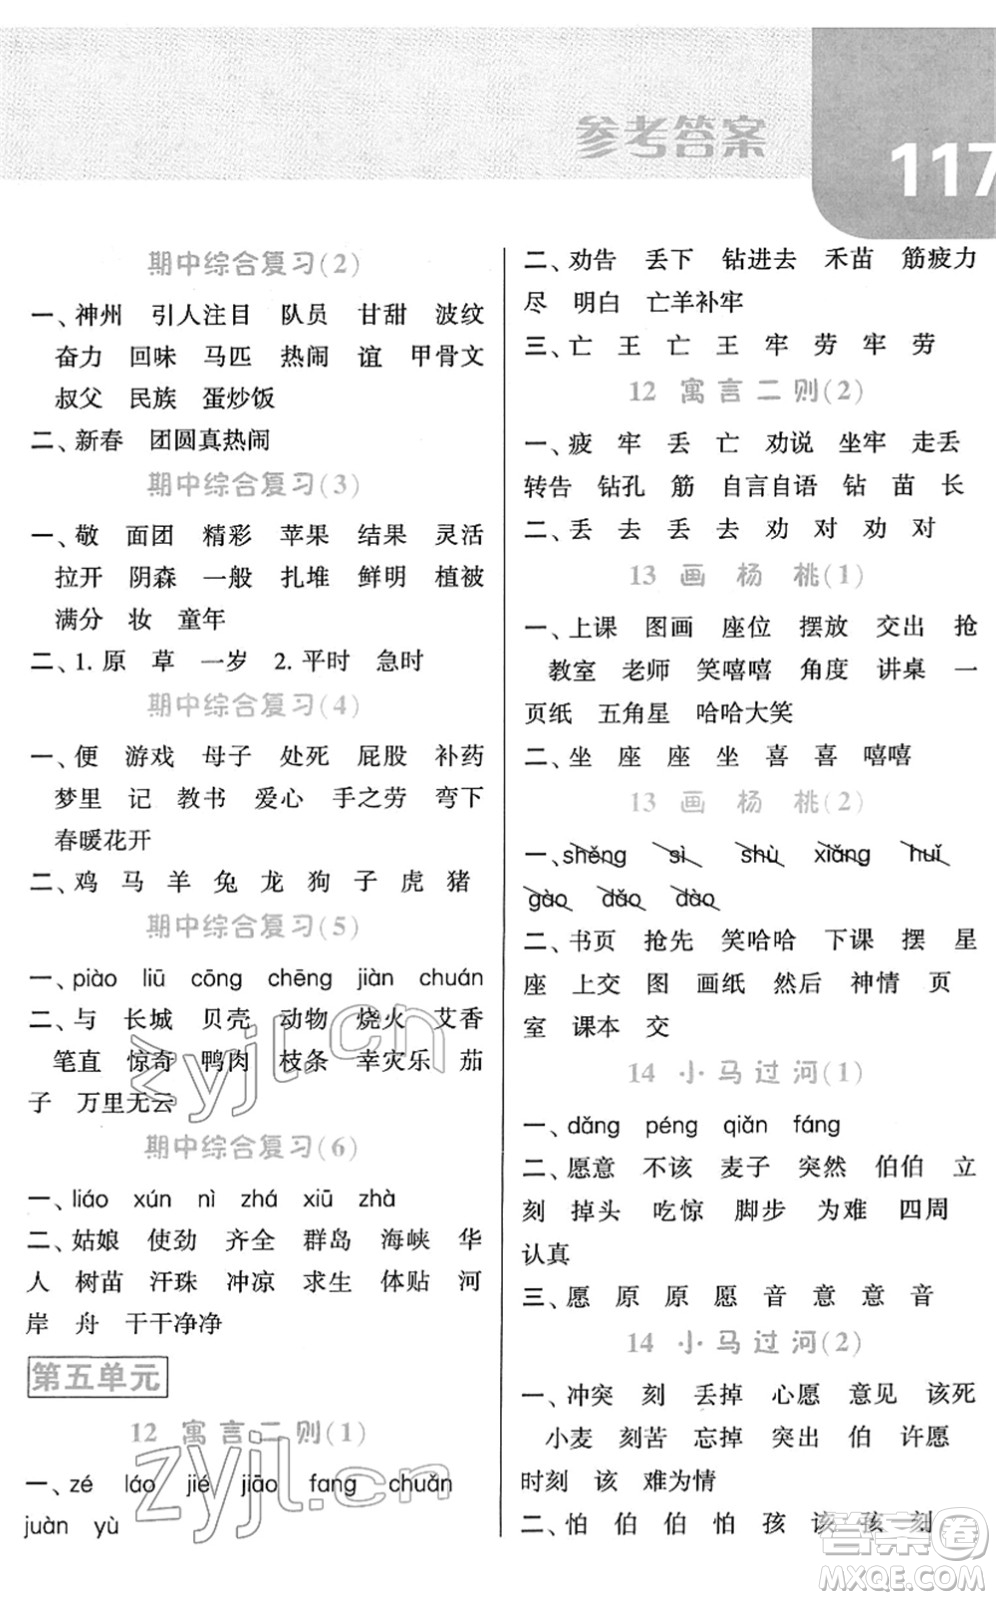 参考答案
117
期中综合复习(2)
一、神州 引人注目 队员 甘甜 波纹
奋力 回味 马匹 热闹 谊 甲骨文
叔父 民族 蛋炒饭
二、新春 团圆真热闹
期中综合复习(3)
一、敬 面团 精彩 苹果 结果 灵活
拉开 阴森 一般 扎堆 鲜明 植被
满分 妆 童年
二、1. 原 草 一岁 2. 平时 急时
期中综合复习(4)
一、便 游戏 母子 处死 屁股 补药
梦里 记 教书 爱心 手之劳 弯下
春暖花开
二、鸡 马 羊 兔 龙 狗 子 虎 猪
期中综合复习(5)
一、piào liū cōng chēng jiàn chuán
二、与 长城 贝壳 动物 烧火 艾香
笔直 惊奇 鸭肉 枝条 幸灾乐 茄
子 万里无云
期中综合复习(6)
一、liáo xún nì zhá xiū zhà
二、姑娘 使劲 齐全 群岛 海峡 华
人 树苗 汗珠 冲凉 求生 体贴 河
岸 舟 干干净净
第五单元
12 寓言二则(1)
一、zé láo jié jiāo fang chuǎn
juàn yù
二、劝告 丢下 钻进去 禾苗 筋疲力
尽 明白 亡羊补牢
三、亡 王 亡 王 牢 劳 牢 劳
12 寓言二则(2)
一、疲 牢 丢 亡 劝说 坐牢 走丢
转告 钻孔 筋 自言自语 钻 苗 长
二、丢 去 丢 去 劝 对 劝 对
13 画 杨 桃(1)
一、上课 图画 座位 摆放 交出 抢
教室 老师 笑嘻嘻 角度 讲桌 一
页纸 五角星 哈哈大笑
二、坐 座 座 坐 喜 喜 嘻嘻
13 画 杨 桃(2)
一、shěng sì shù xiǎng huǐ
gào dǎo dào
二、书页 抢先 笑哈哈 下课 摆 星
座 上交 图 画纸 然后 神情 页
室 课本 交
14 小马过河(1)
一、dǎng péng qiǎn fáng
二、愿意 不该 麦子 突然 伯伯 立
刻 掉头 吃惊 脚步 为难 四周
认真
三、愿 原 原 愿 音 意 意 音
14 小马过河(2)
一、冲突 刻 丢掉 心愿 意见 该死
小麦 刻苦 忘掉 突出 伯 许愿
时刻 该 难为情
二、怕 伯 伯 怕 孩 该 孩 刻
zyjl.cn
zyjl.cn
答案圈
MXQE.COM